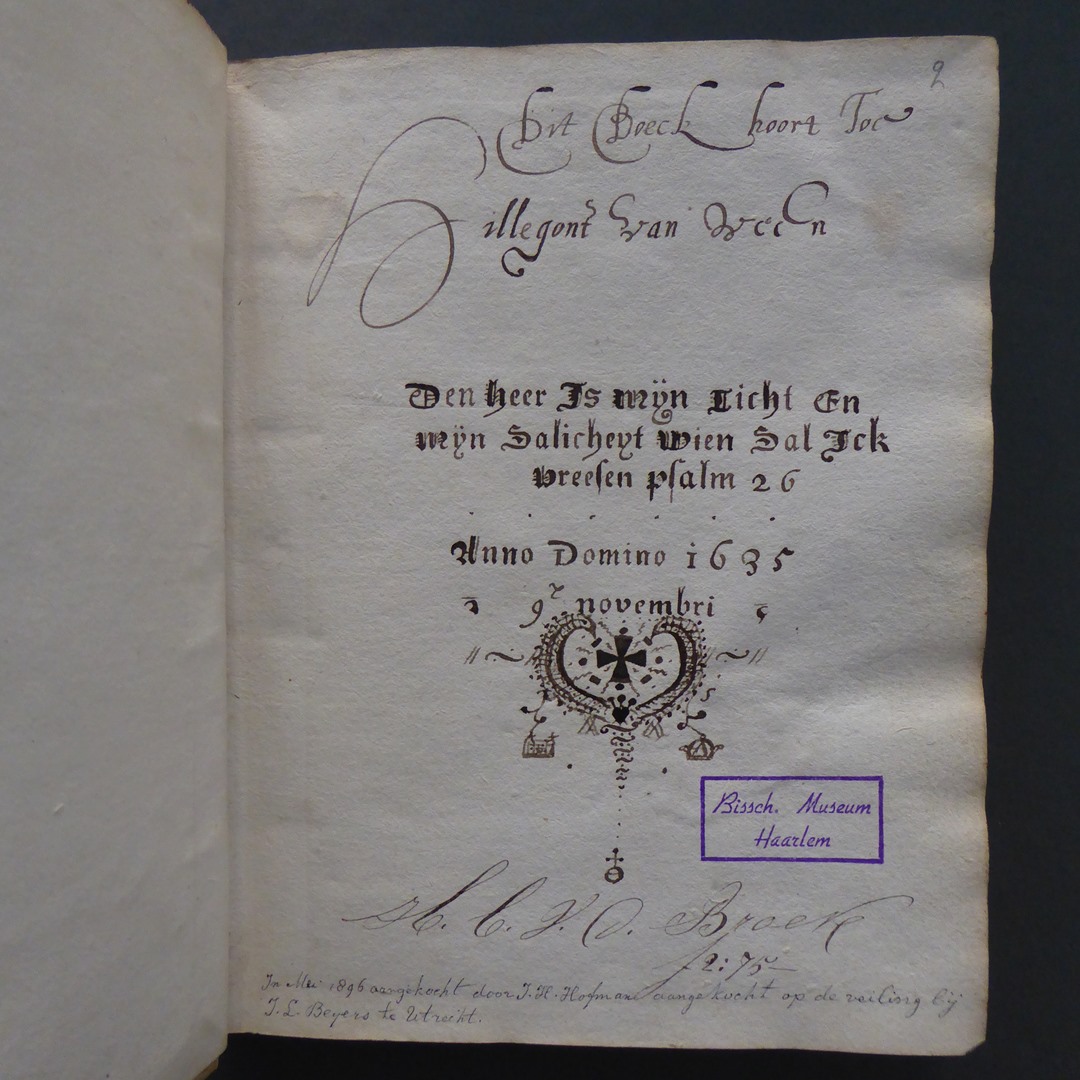 2
Dit Boeck hoort Toe
Hillegont van Ween
Den heer Is mÿn Licht En
mÿn Salicheyt wien Sal Ick
vreesen psalm 26
Anno Domino 1635
9 novembri
Bissch. Museum
Haarlem
H. C. V. d. Broek
f 2:75
In Mei 1896 aangekocht door J. H. Hofman aangekocht op de veiling bij
J. L. Beyers te Utrecht.